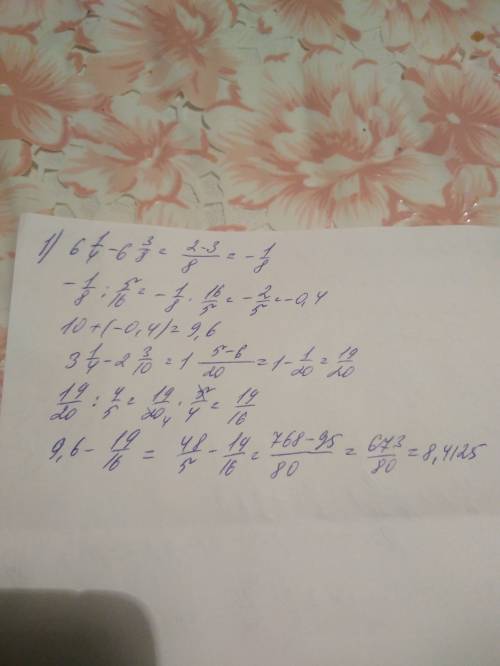 1) 6 1/4 - 6 3/8 = (2-3)/8 = - 1/8
- 1/8 : 5/16 = - 1/8 · 16/5 = - 2/5 = -0,4
10 + (-0,4) = 9,6
3 1/4 - 2 3/10 = 1 (5-6)/20 = 1 - 1/20 = 19/20
19/20 : 4/5 = 19/20 4 · 5/4 = 19/16
9,6 - 19/16 = 48/5 - 19/16 = (768-95)/80 = 673/80 = 8,4125